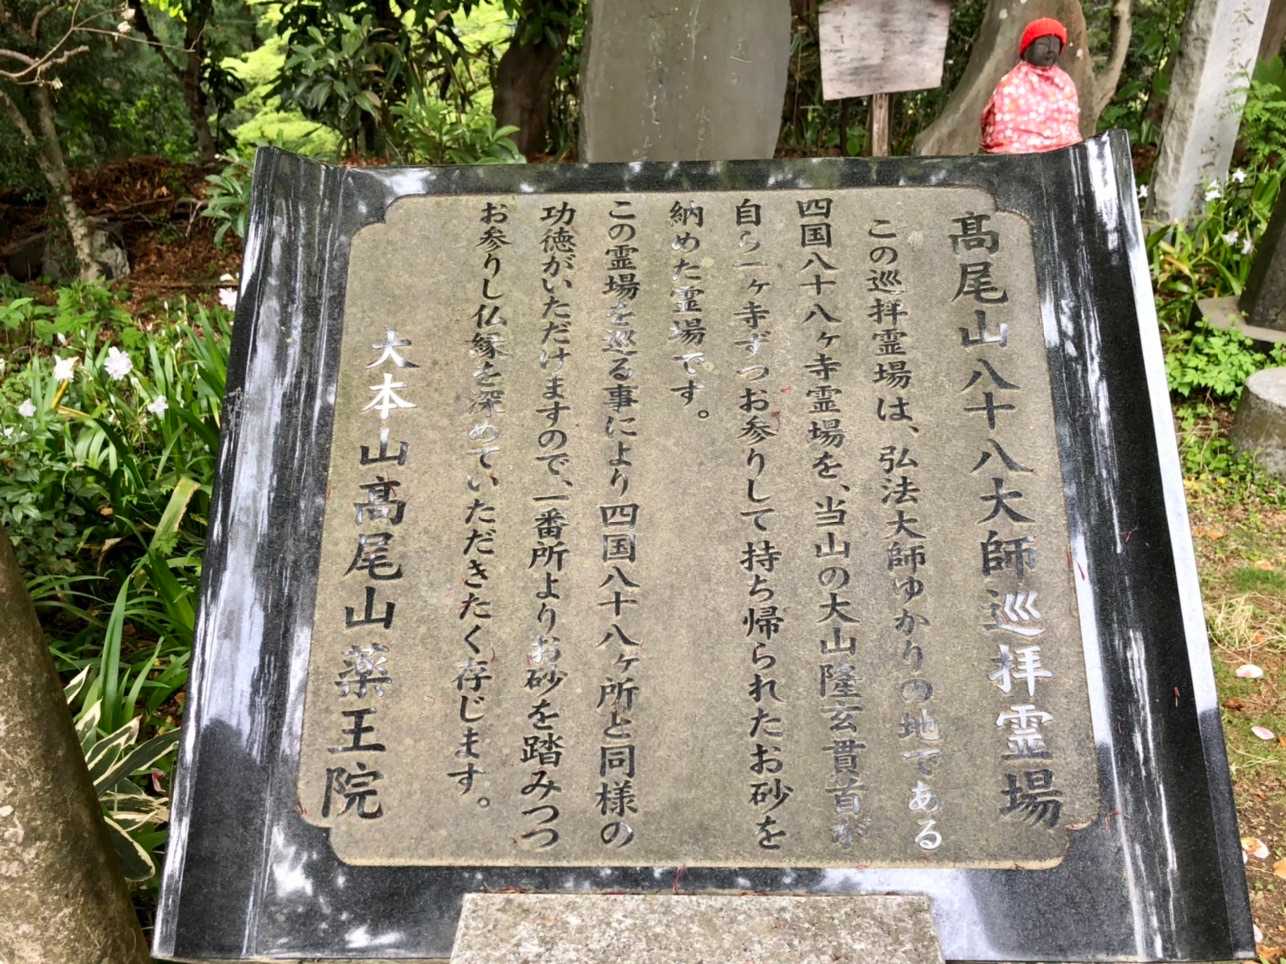 髙尾山八十八大師巡拝霊場
この巡拝霊場は、弘法大師ゆかりの地である
四国八十八ヶ寺霊場を、当山の大山隆玄貫首が
自ら一ヶ寺ずつお参りして持ち帰られたお砂を
納めた霊場です。
この霊場を巡る事により四国八十八ヶ所と同様の
功徳がいただけますので、一番所よりお砂を踏みつつ
お参りし仏縁を深めていただきたく存じます。
大本山髙尾山薬王院